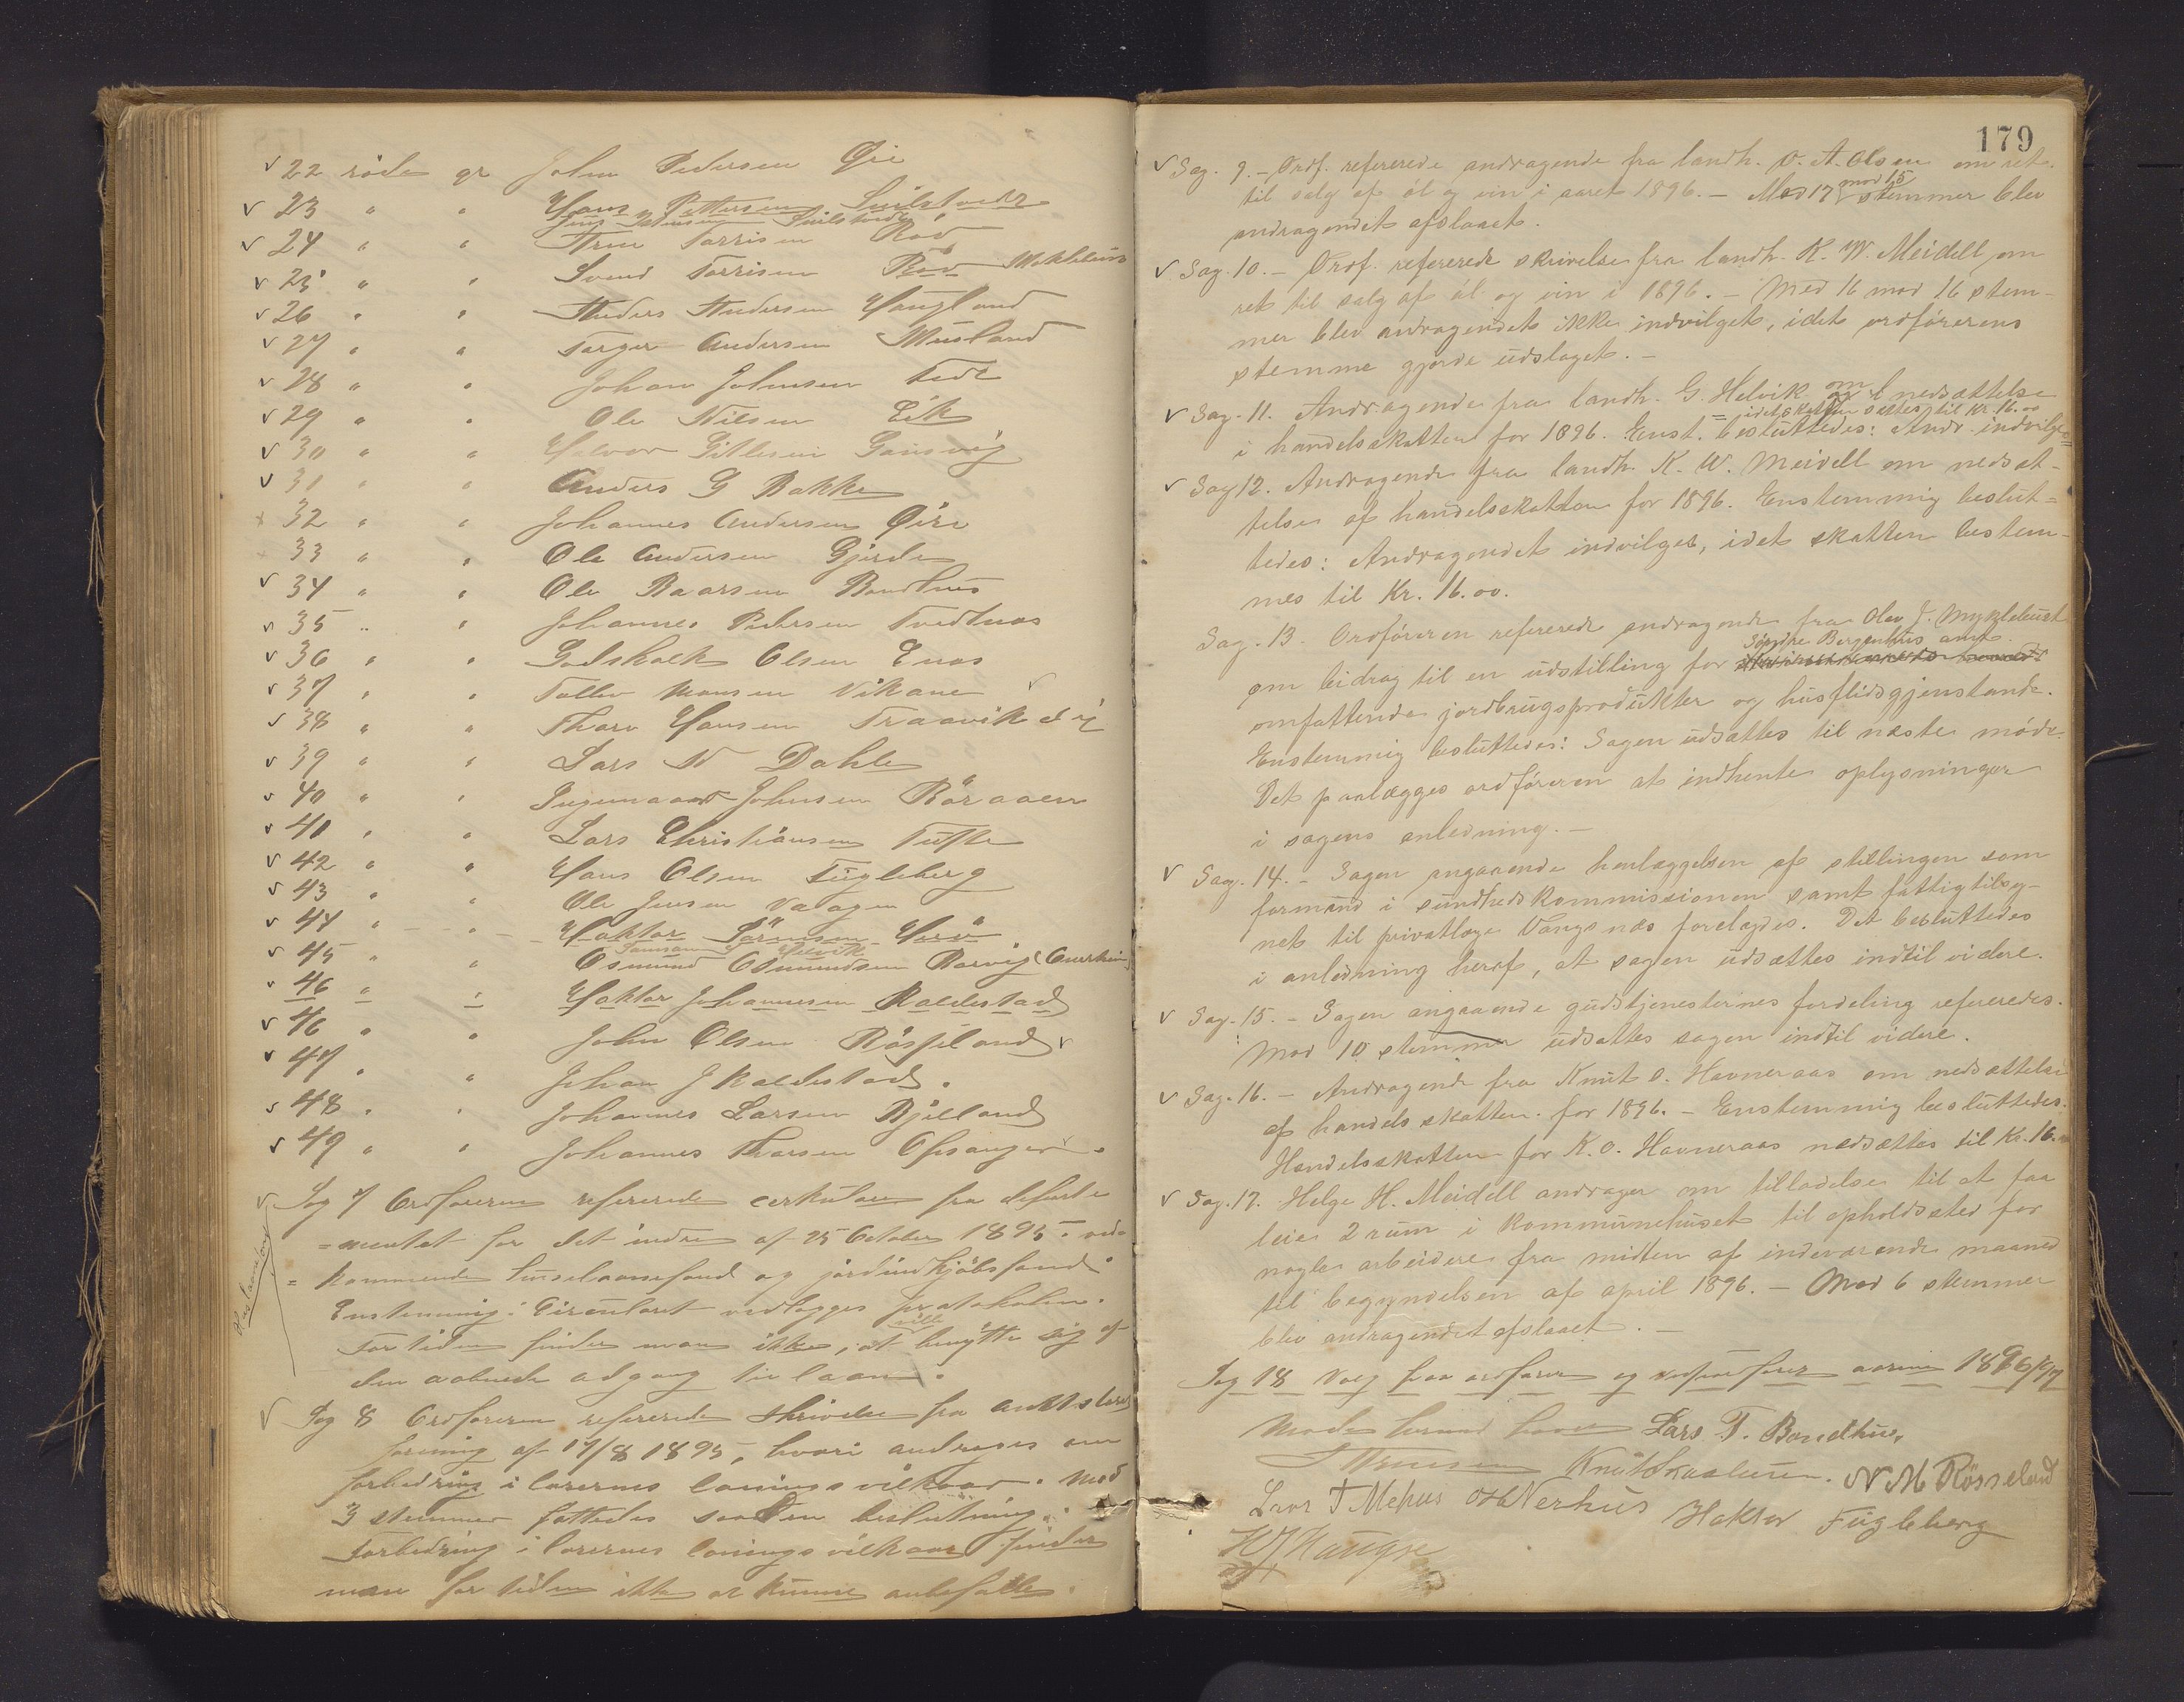 ✓ 22 röde gr John Pedersen Øie
✓ 23 " " Hans Pettersen Snilstveit
Jens Jensen Snilstveit
✓ 24 " " Arne Torrisen Röd
✓ 25 " " Svend Torrisen Röd Myklebust
✓ 26 " " Anders Andersen Haugland
✓ 27 " " Torger Andersen Musland
✓ 28 " " Johan Johnsen Tveit
✓ 29 " " Ole Nilsen Eik
✓ 30 " " Halvor Gitlesen Gausvig
✓ 31 " " Anders G Bakke
32 " " Johannes Andersen Øire
33 " " Ole Andersen Gjerde
✓ 34 " " Ole Baarsen Bondhus
✓ 35 " " Johannes Pedersen Tvedtnæs
✓ 36 " " Godskalk Olsen Enæs
✓ 37 " " Tollev Monsen Vikane ✓
✓ 38 " " Thore Hansen Traavik
✓ 39 " " Lars N Dahle
✓ 40 " " Ingemand Johnsen
✓ 41 " " Lars Christiansen Tufte
✓ 42 " " Hans Olsen Fugleberg
✓ 43 " " Ole Jensen Vaagen
✓ 44 " " Haktor Sörensen
✓ 45 " " Osmund Osmundsen Rørvig
✓ 46 " " Haktor Johannesen Kaldestad
✓ 46 " " John Olsen Rösseland ✓
✓ 47 " " Johan J Kaldestad.
✓ 48 " " Johannes Larsen Bjelland
✓ 49 " " Johannes Thorsen Opsanger.
✓ Sag 7 Ordføreren refererede cerkulære fra departe
=mentet for det indre af 25 October 1895 ved=
=kommende huuslaanefond og jordindkjøbsfond.
Huslaanefond
Enstemmig: Circulæret vedlægges protokolen.
For tiden finder man ikke, at ville benytte sig af
den aabnede adgang til laan.
✓ Sag 8 Ordføreren refererede skrivelse fra amtslærer
forening af 17/8 1895, hvori andrages om
forbedring i lærernes lønningsvilkaar. Mod
3 stemmer fattedes saadan beslutning:
Forbedring i lærernes lønningsvilkaar finder
man for tiden ikke at kunne anbefalle.
179
✓ Sag. 9. - Ordf. refererede andragende fra landh. O. A. Olsen om ret
til salg af öl og vin i aaret 1896. - Med 17 mod 15 stemmer blev
andragendet afslaaet.
✓ Sag. 10. - Ordf. refererede skrivelse fra landh. K. W. Meidell om
ret til salg af öl og vin i 1896. - Med 16 mod 16 stem-
mer blev andragendet ikke indvilget, idet ordförerens
stemme gjorde udslaget. -
✓ Sag. 11. Andragende fra landh. G. Helvik om nedsættelse
= idet skatten sættes til Kr. 16.00
i handelsskatten for 1896. Enst. besluttedes: Andr. indvilges =
✓ Sag 12. Andragende fra landh. K. W. Meidell om nedsæt-
telse af handelsskatten for 1896. Enstemmig beslut=
tedes: Andragendet indvilges, idet skatten bestem-
mes til Kr. 16.00.
Sag. 13. Ordföreren refererede andragende fra Olav J. Myklebust
Söndre Bergenhus amt.
om bidrag til en udstilling for
omfattende jordbrugsprodukter og husflidsgjenstande.
Enstemmig besluttedes: Sagen udsættes til næste möde.
Det paalægges ordföreren at indhente oplysninger
i sagens anledning. -
✓ Sag. 14. - Sagen angaaende henlæggelsen af stillingen som
formand i sundhedskommissionen samt fattigtilsy-
net til privatlæge Vangsnes forelagdes. Det besluttedes
i anledning heraf, at sagen udsættes indtil videre.
✓ Sag. 15. - Sagen angaaende gudstjenesternes fordeling refereredes.
Mod 10 stemmer udsattes sagen indtil videre.
✓ Sag. 16. - Andragende fra Knut O. Havneraas om nedsættelse
af handelsskatten for 1896. - Enstemmig besluttedes:
Handelsskatten for K. O. Havneraas nedsættes til Kr. 16.00
✓ Sag. 17. Helge H. Meidell andrager om tilladelse til at faa
leie 2 rum i kommunehuset til opholdssted for
nogle arbeidere fra midten af indeværende maaned
til begyndelsen af april 1896. - Mod 6 stemmer
blev andragendet afslaaet. -
Sag 18 Valg paa ordfører og viseordfører aarene 1896/97
Mødet hermed hævet Lars T. Bondhus.
Knut Skaaluren. N M Rösseland
Lars T Mehus O H Nerhus Haktor Fugleberg
H J Hauge